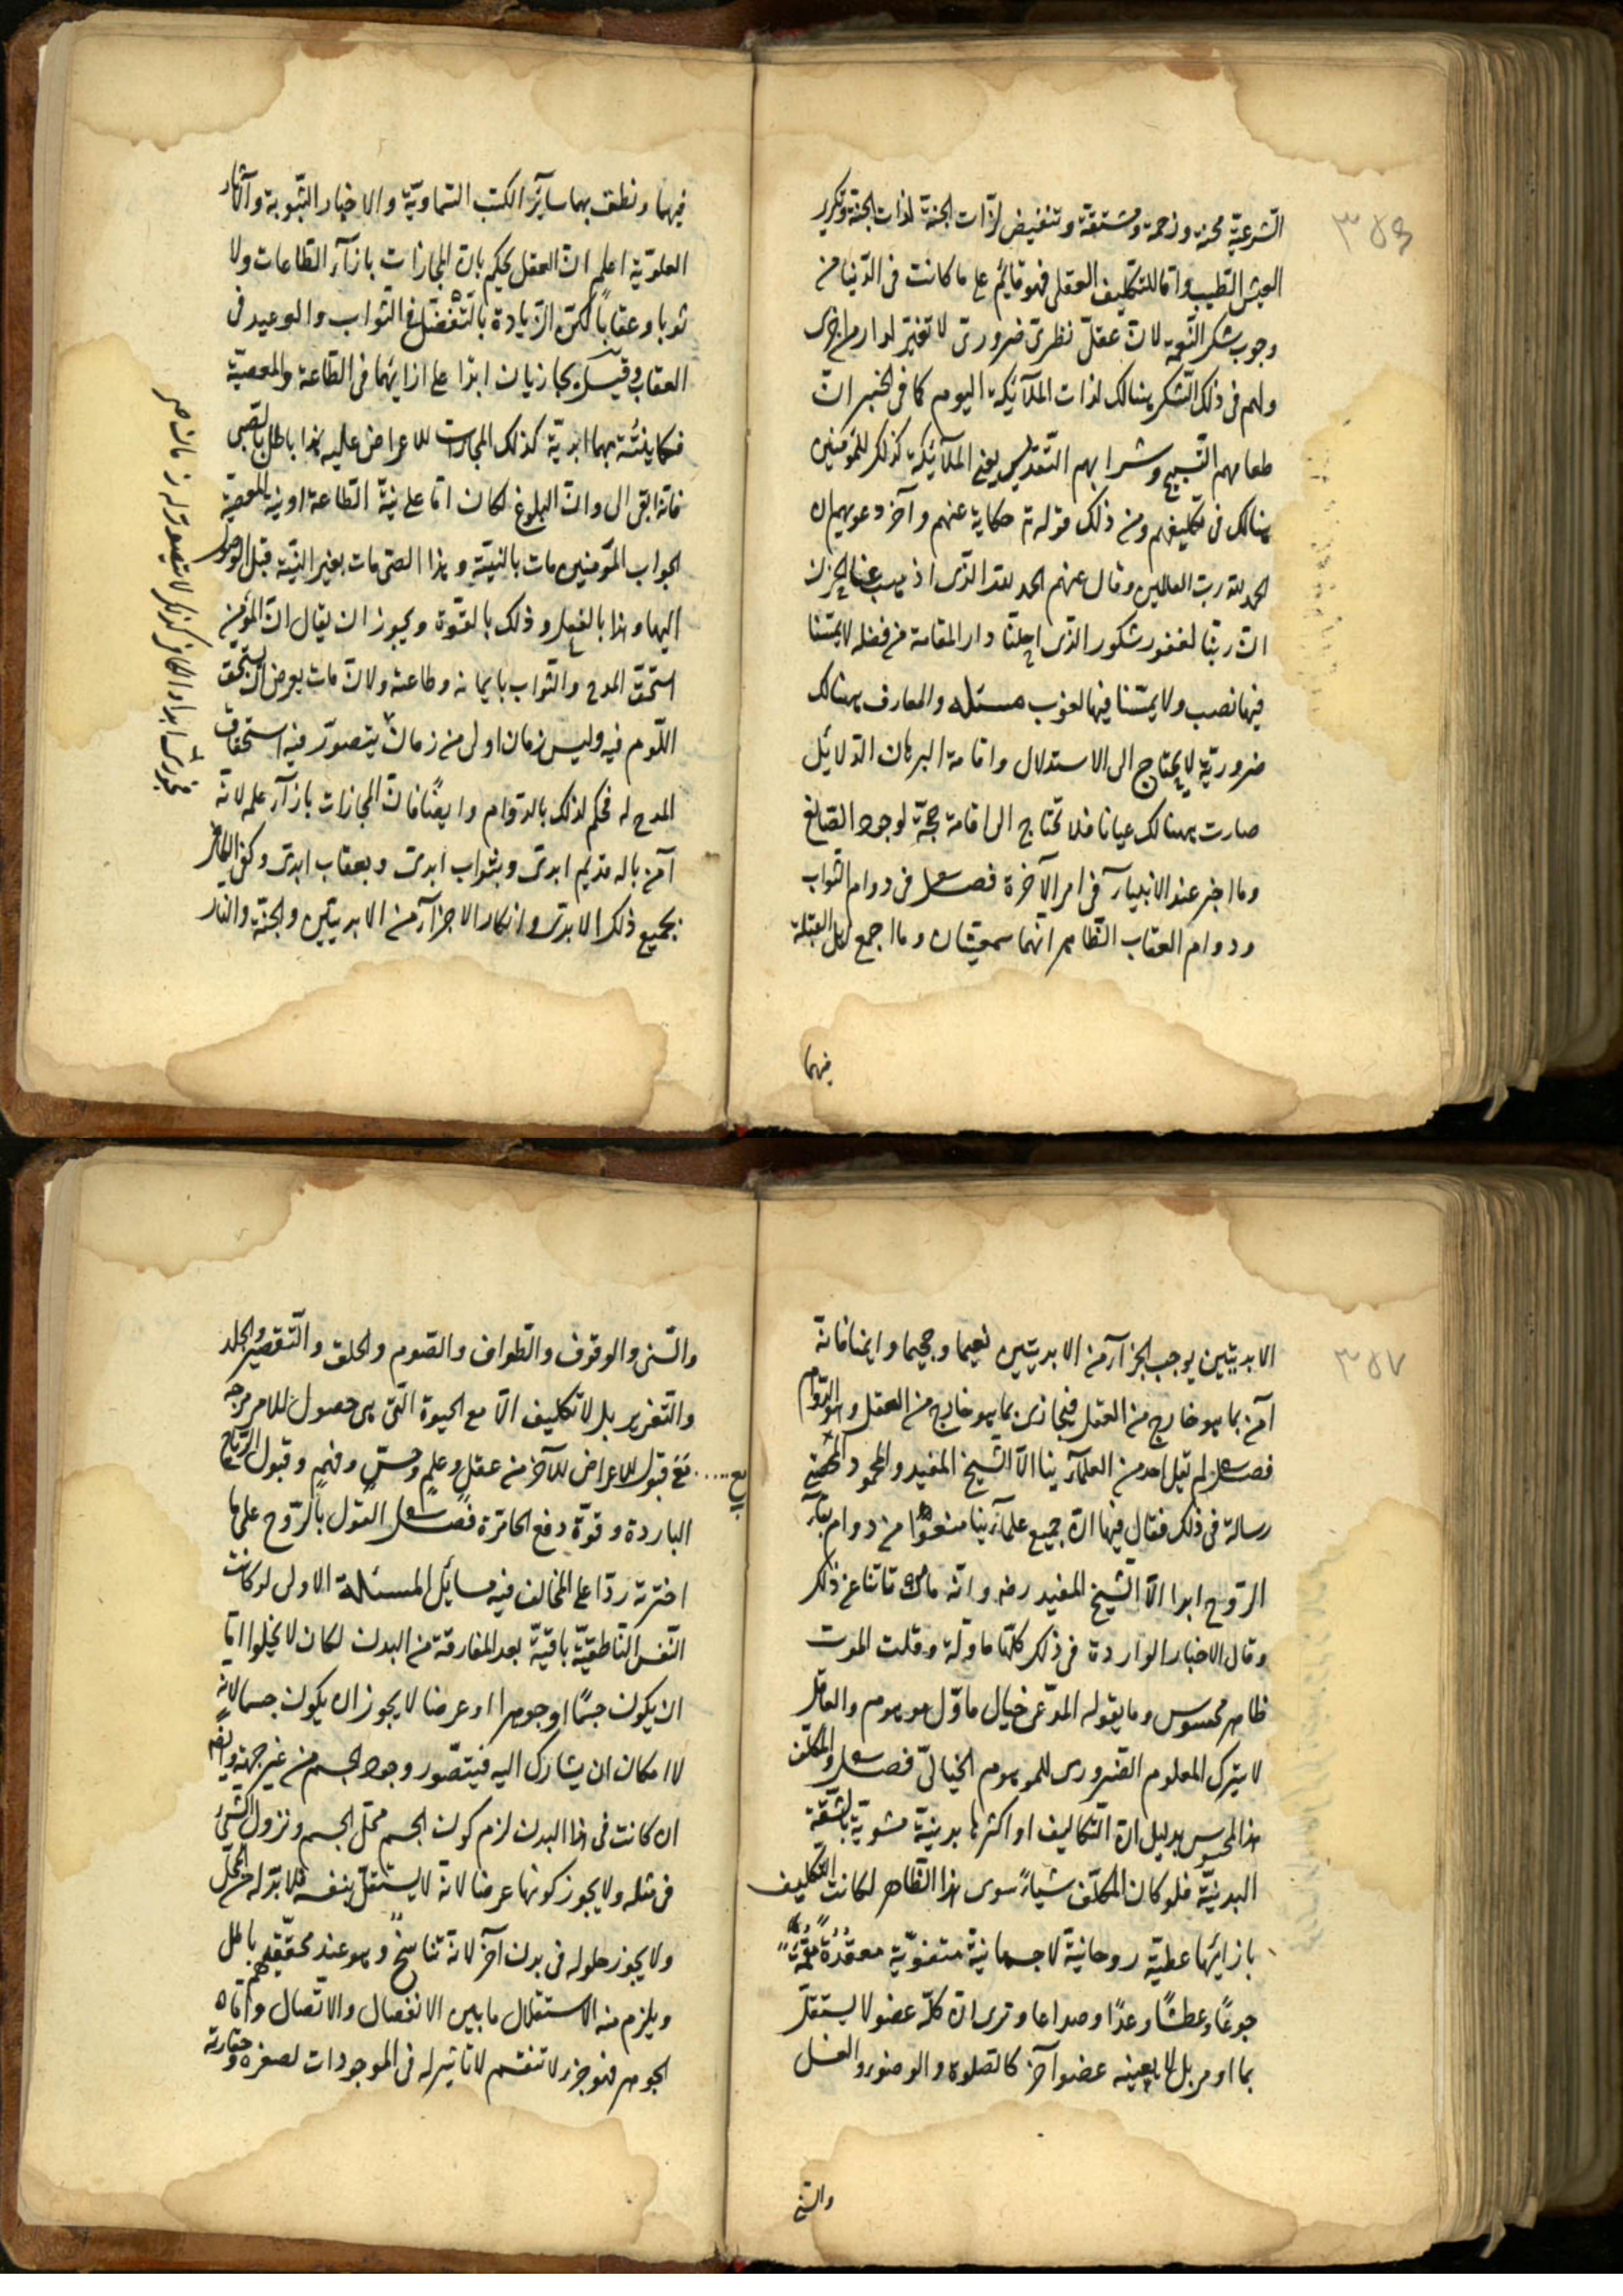 ٣٥٦
الشرعيّة محنة وزحمة ومشقة وتنغيض لذّات الجنة لذات الجنة وتكرير
العيش الطيب وامّا للتكليف العقلى فهو قايم على ما كانت فى الدّنيا من
وجوب شكر النّعمة لانّ عقلىّ نظرىّ ضرورىّ لا تغيّر لدار من اخرى
ولهم فى ذلك الشكر هنالك لذات الملآئكة اليوم كما فى الخبر انّ
طعامهم التّسبيح وشرابهم التّقديس يعنى الملآئيكة كذلك للمؤمنين
هنالك فى تكليفهم ومن ذلك قوله تع حكاية عنهم وآخر دعويهم ان
الحمد لله رب العالمين وقال عنهم الحمد لله الّذى اذهب عنا الحزن
انّ ربّنا لغفور شكور الذى احلّنا دار المقامة من فضله لا يمسّنا
فيها نصب ولا يمسّنا فيها لغوب مسئله والمعارف هنالك
ضروريّة لا يحتاج الى الاستدلال واقامة البرهان الدّلائل
صارت هنالك عيانا فلا تحتاج الى اقامة حجّة لوجود الصّانع
وما اخبر عنه الانبيآء فى امر الآخرة فصل فى دوام الثواب
ودوام العقاب الظّاهر انّهما سمعيّتان وما اجمع اهل القبلة
فيهما
فيهما ونطق بهما سآئر الكتب السّماويّة والاخبار النّبويّة وآلآثار
العلويّة اعلم انّ العقل يحكم بانّ المجازات بازآء الطّاعات ولا
ثوبا وعقاباً لكنّ الزيادة بالتّفضّل فى الثّواب والوعيد فى
العقاب وقيل يجازيان ابدا على ازايهما فى الطّاعة والمعصيّة
فكما نيّته بهما ابديّة كذلك المجازات للاعراض عليه هذا باطل بالصّبى
فانّه ابقى ال وانّ البلوغ لكان امّا على نيّة الطّاعة او نيّة المعصيّة
الجواب المؤمنين مات بالنيّة وهذا الصبى مات بغير النّيّة قبل الوصول
اليها وهذا بالفعل وذلك بالقوّة ويجوز ان يقال انّ المؤمن
استحقّ المدح والثواب بايمانه وطاعته ولانّ مات بعرض ان يستحق
اللّوم فيه وليس زمان اولى من زمان يتصوّر فيه استحقاق
المدح له فحكم لذلك بالدّوام وايضًا فانّ المجازات بازآء علمه لانّه
آمن باله قديم ابدىّ وبثواب ابدىّ وبعقاب ابدىّ وكفر الكافر
بجميع ذلك الابدىّ وانكار الاجزآء من الابديّتين والجنّة والنّار
٣٥٧
الابديّتين يوجب الجزآء من الابديّتين نعيما وجحيما وايضا فانّه
آمن بما هو خارج من العقل فيجازى بما هو خارج من العقل وهو الدّوام
فصل لم يقل احد من العلمآء ينا الاّ الشّيخ المفيد والمحمود الحمّصى
رسالة فى ذلك فقال فيها انّ جميع علمآئينا منعوا من دوام بقآء
الرّوح ابدا الاّ الشّيخ المفيد ره وانّه مات تائبا عن ذلك
وقال الاخبار الواردة فى ذلك كلّها ماوّلة وقلت الموت
ظاهر محسوس وما يقوله المدّعى خيال ماوّل موهوم والعاقل
لا يترك المعلوم الضّرورى للموهوم الخيالىّ فصل والمكلّف
هذا المحسوس بدليل انّ التّكاليف او اكثرها بدنيّة مشوبة بالمشقّة
البدنيّة فلو كان المكلّف شيئاً سوى هذا الظّاهر لكانت التكليف
بازايها عطيّة روحانيّة لا جسمانية
جوعًا وعطشًا وعدًا وصداعا وترى انّ كلّ عضو لا يستقلّ
بما اومر بل لا يعينه عضوا آخر كالصّلوة والوضوء والغسل
والسّعى
والسّعى والوقوف والطّواف والصّوم والحلق والتّقصير والجلد
والتّعزير بل لا تكليف الاّ مع الحيوة الّتى هى حصول للامر مزجه
مَعَ قبول للاعراض للآخر من عقل وعلمٍ وحسّ وفهم وقبول الرّياح
الباردة وقوّة دفع الحائرة فصل القول بالرّوح على ما
اخترته ردّا على المخالف فيه مسايل المسئلة الاولى لو كانت
النّفس النّاطقيّة باقيّة بعد المفارقة من البدن لكان لا يخلوا امّا
ان يكون جسمًا او جوهرا او عرضا لا يجوز ان يكون جسما لانّه
لا امكان ان يشارك اليه فيتصّور وجود الجسم من غير جهة وايضا
ان كانت فى هذا البدن لزم كون الجسم محلّ الجسم ونزول الشىء
فى مثله ولا يجوز كونها عرضا لانّه لا يستقلّ بنفسه فلا بدّ له من محلّ
ولا يجوز حلوله فى بدن آخر لانّه تناسخٌ وهو عند محقّقهم باطل
ويلزم منه الاستقلال ما بين الانفصال والاتّصال وامّا
الجوهر فهو جزء لا تنقسم لا تاثير له فى الموجودات لصغره وحقارته